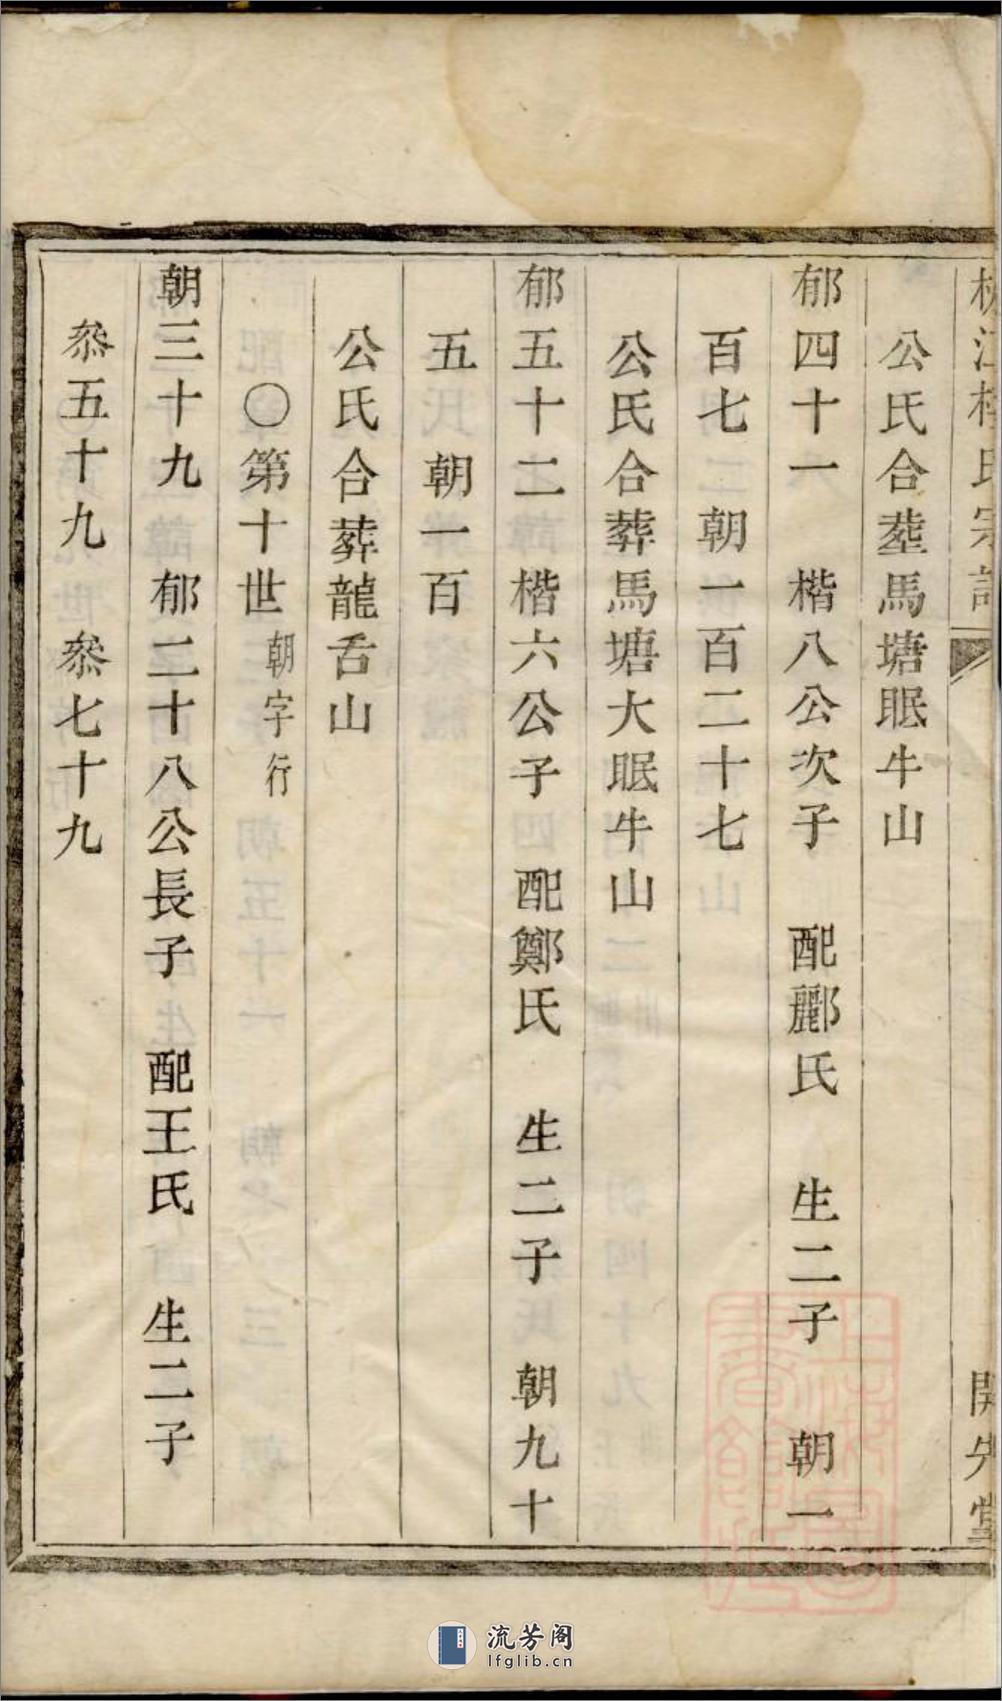 江 氏宗
開先堂
公氏合塟馬塘眠牛山
郁四十一 楷八公次子 配酈氏 生二子 朝一
百七 朝一百二十七
公氏合葬馬塘大眠牛山
郁五十二 楷六公子 配鄭氏 生二子 朝九十
五 朝一百
公氏合葬龍舌山
〇第十世 朝字行
朝三十九 郁二十八公長子 配王氏 生二子
叅五十九 叅七十九
流芳阁
lfglib.cn